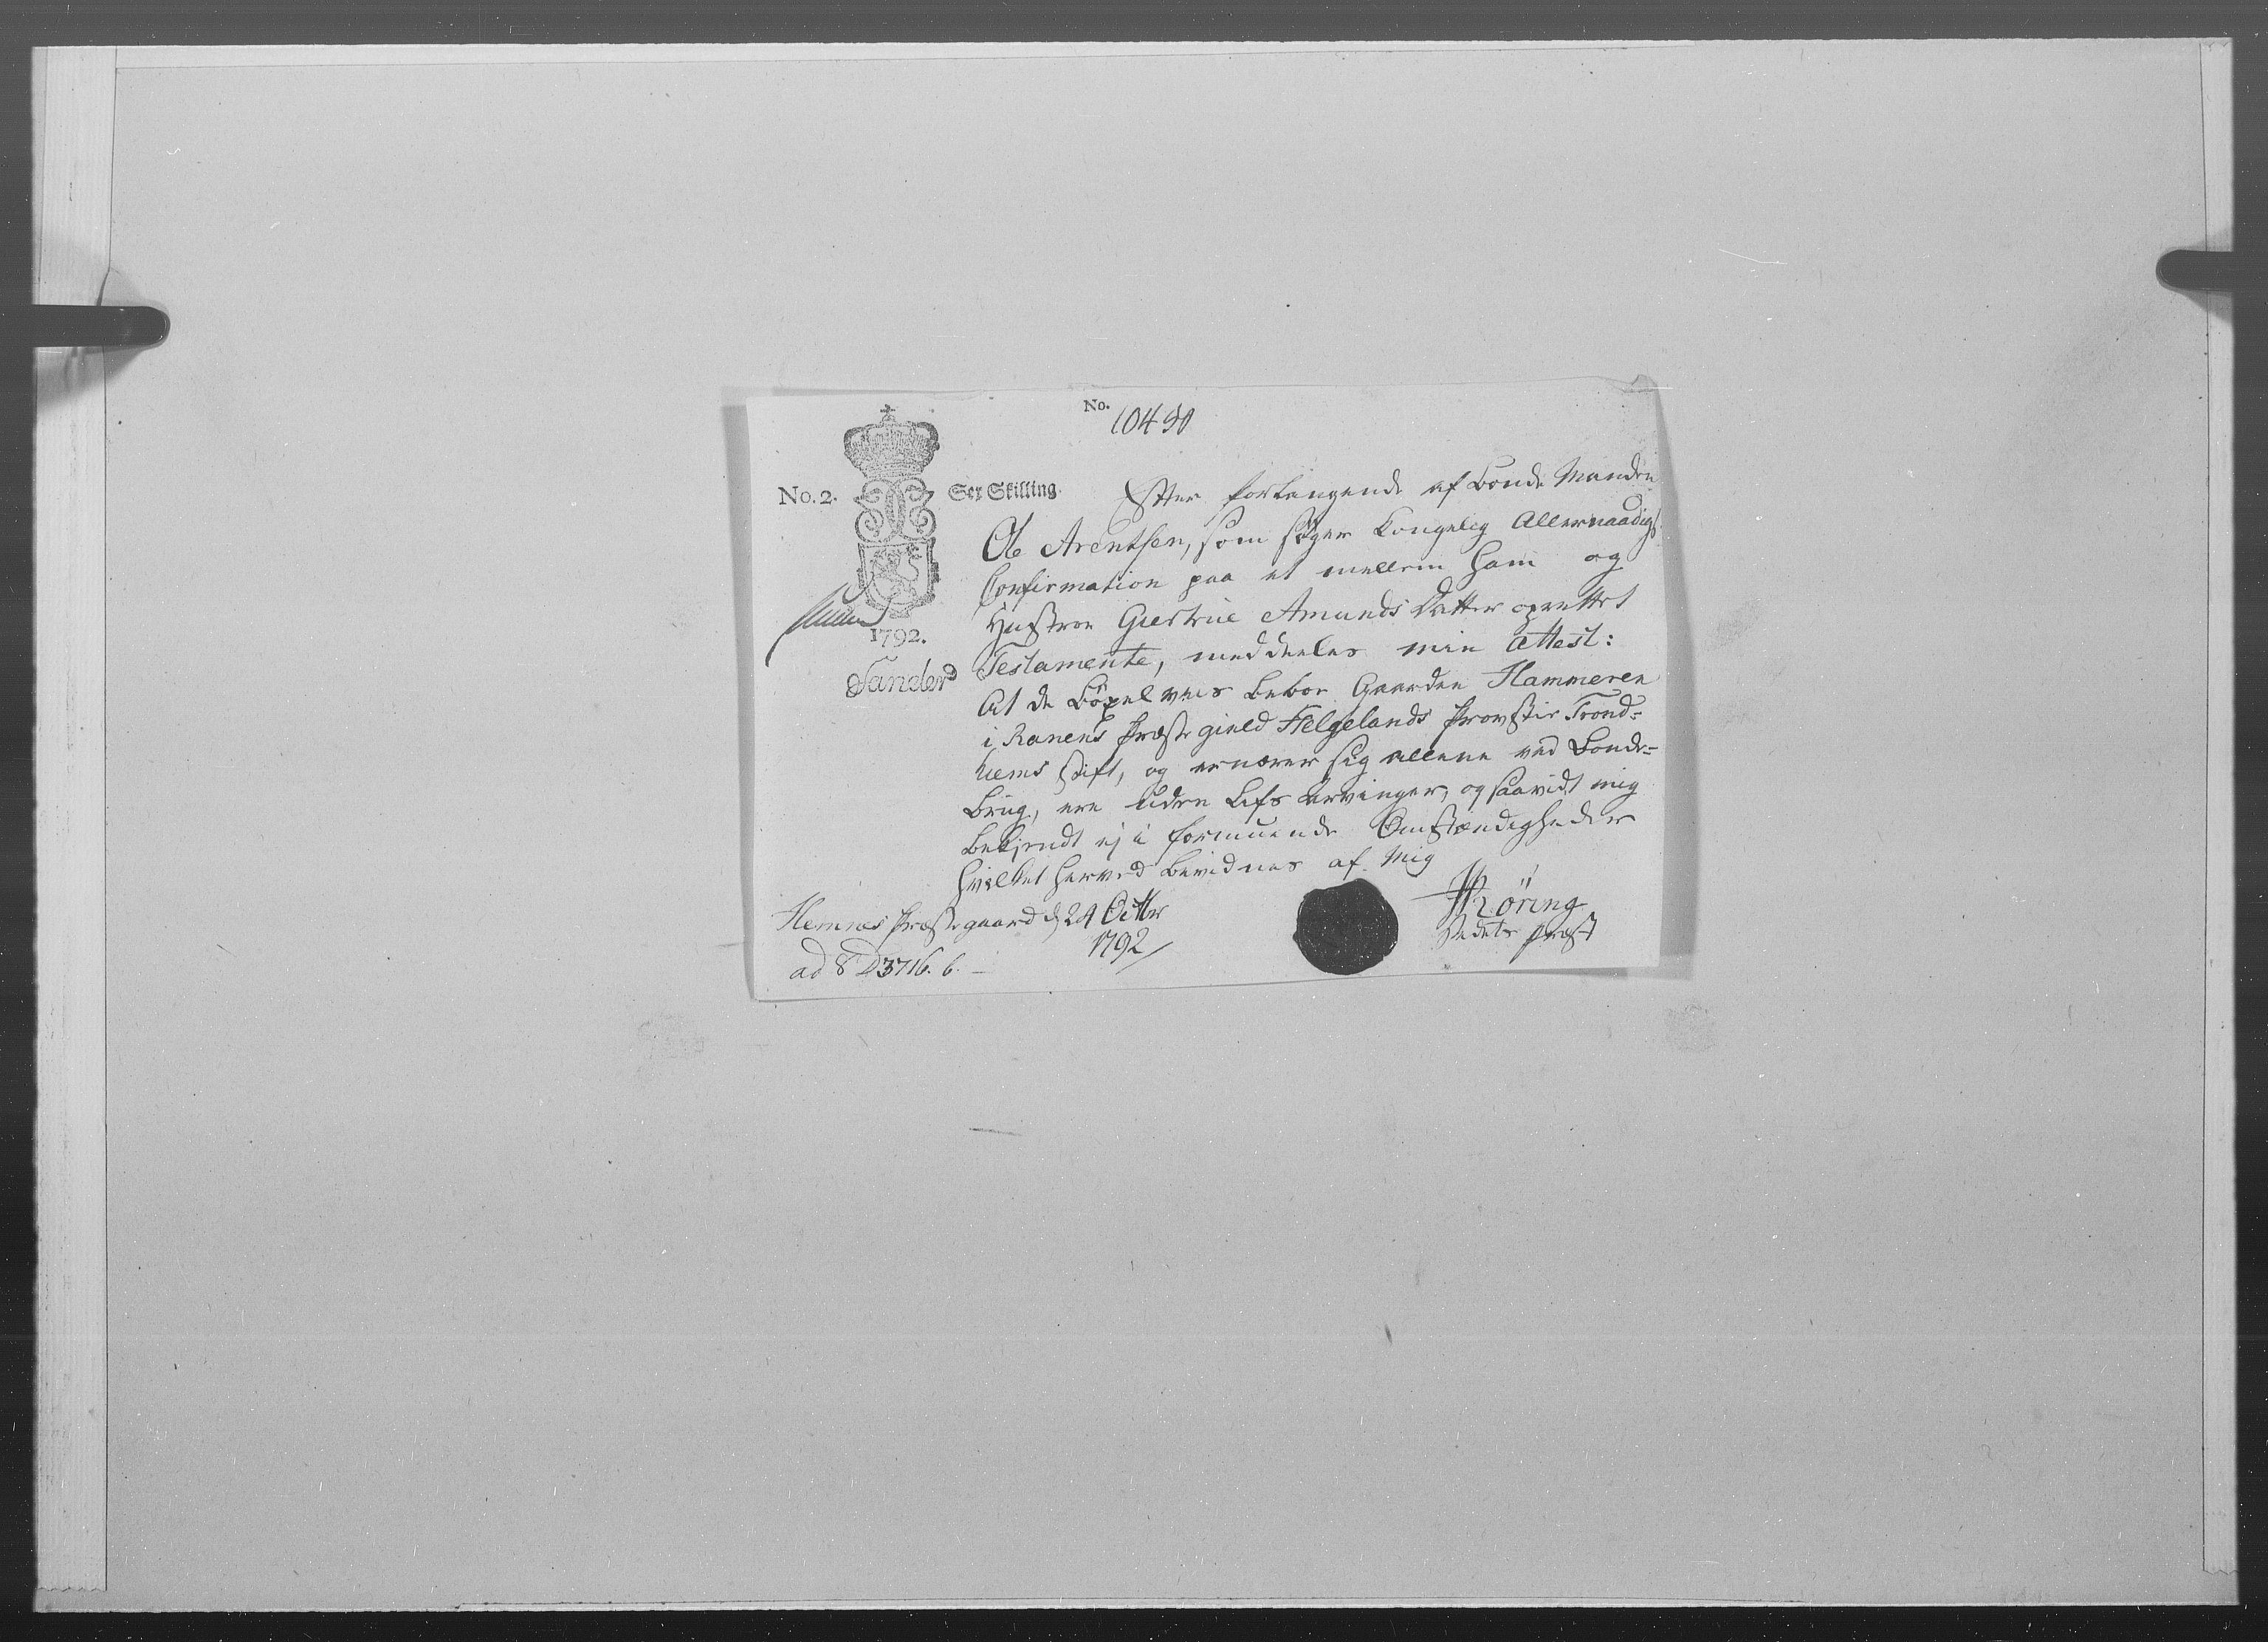 No. 10490
No. 2. Sex Skilling.
Efter forlangende af Bonde Manden
Ole Arentsen, som søger Kongelig Allernaadigst
Confirmation paa et mellem ham og
Hustrue Giertrue Amunds Datter oprettet
1792.
Testamente, meddeeles min Attest:
At de bøxelviis beboe Gaarden Hammeren
i Ranens Præstegield Helgelands Provstie Trond-
hiems Stift, og ernærer sig allene ved Bonde-
brug, ere uden Lifs Arvinger, og saavidt mig
bekjendt ej i formuende Omstændigheder
hvilket herved bevidnes af Mig
Hemnes Præstegaard d. 24 Octbr
1792
Röring
Stedets Præst
ad 8 D 3716. b.